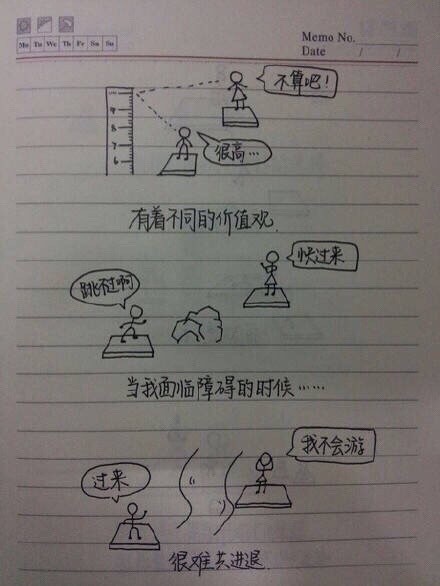 Memo No.
Mo Tu We Th Fr Sa Su
Date / /
不算吧！
很高…
有着不同的价值观
快过来
跳不过啊
当我面临障碍的时候……
我不会游
过来
很难共进退